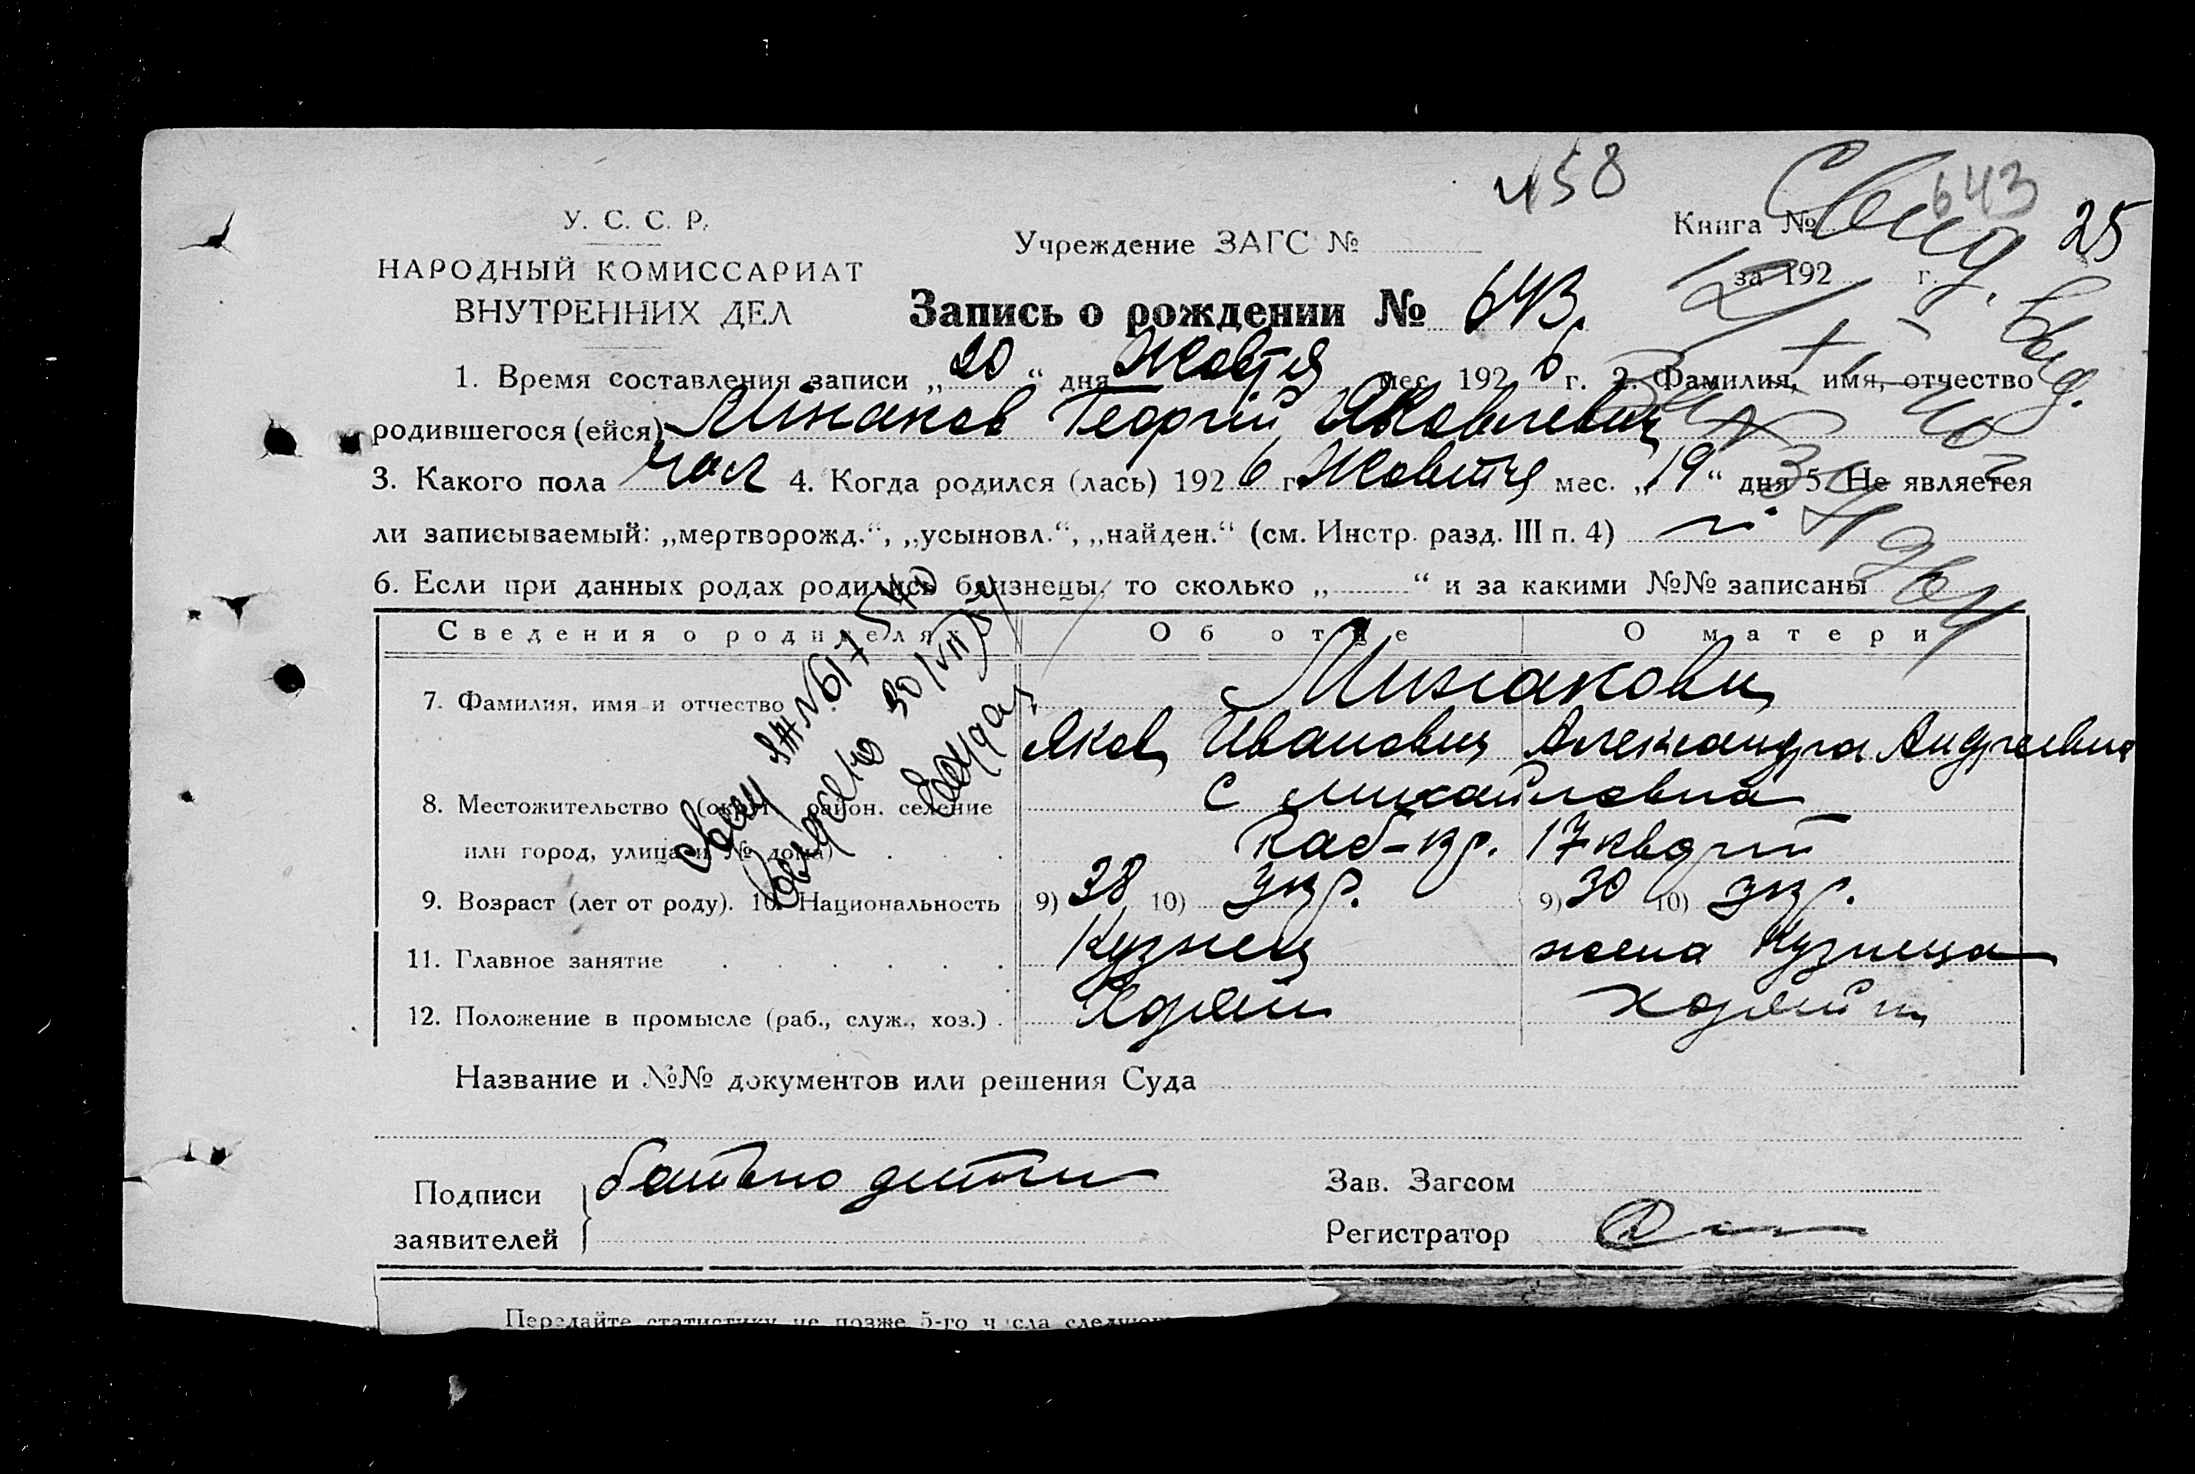 458
643
25
У. С. С. Р.
НАРОДНЫЙ КОМИССАРИАТ
ВНУТРЕННИХ ДЕЛ
Учреждение ЗАГС №
Книга №
за 192 г.
Запись о рождении № 643.
1. Время составления записи „20“ дня Жовтня мес. 1926 г. 2. Фамилия, имя, отчество
родившегося (ейся) Мінаков Георгій Яковлевич
3. Какого пола чол 4. Когда родился (лась) 1926 г. Жовтня мес. „19“ дня 5. Не является
ли записываемый: „мертворожд.“, „усыновл.“, „найден.“ (см. Инстр. разд. III п. 4)
6. Если при данных родах родились близнецы, то сколько „ “ и за какими №№ записаны
Сведения о родителях Об отце О матери
7. Фамилия, имя и отчество Минакови
Яков Иванович Александра Андреевна
8. Местожительство (округ, район, селение с Михайловка
или город, улица и № дома)
9. Возраст (лет от роду). 10. Национальность 9) 38 10) укр. 9) 30 10) укр.
11. Главное занятие Кузнец жена Кузнеца
12. Положение в промысле (раб., служ., хоз.)
Название и №№ документов или решения Суда
Подписи батько дити
заявителей
Зав. Загсом
Регистратор
Передайте статистику не позже 5-го числа